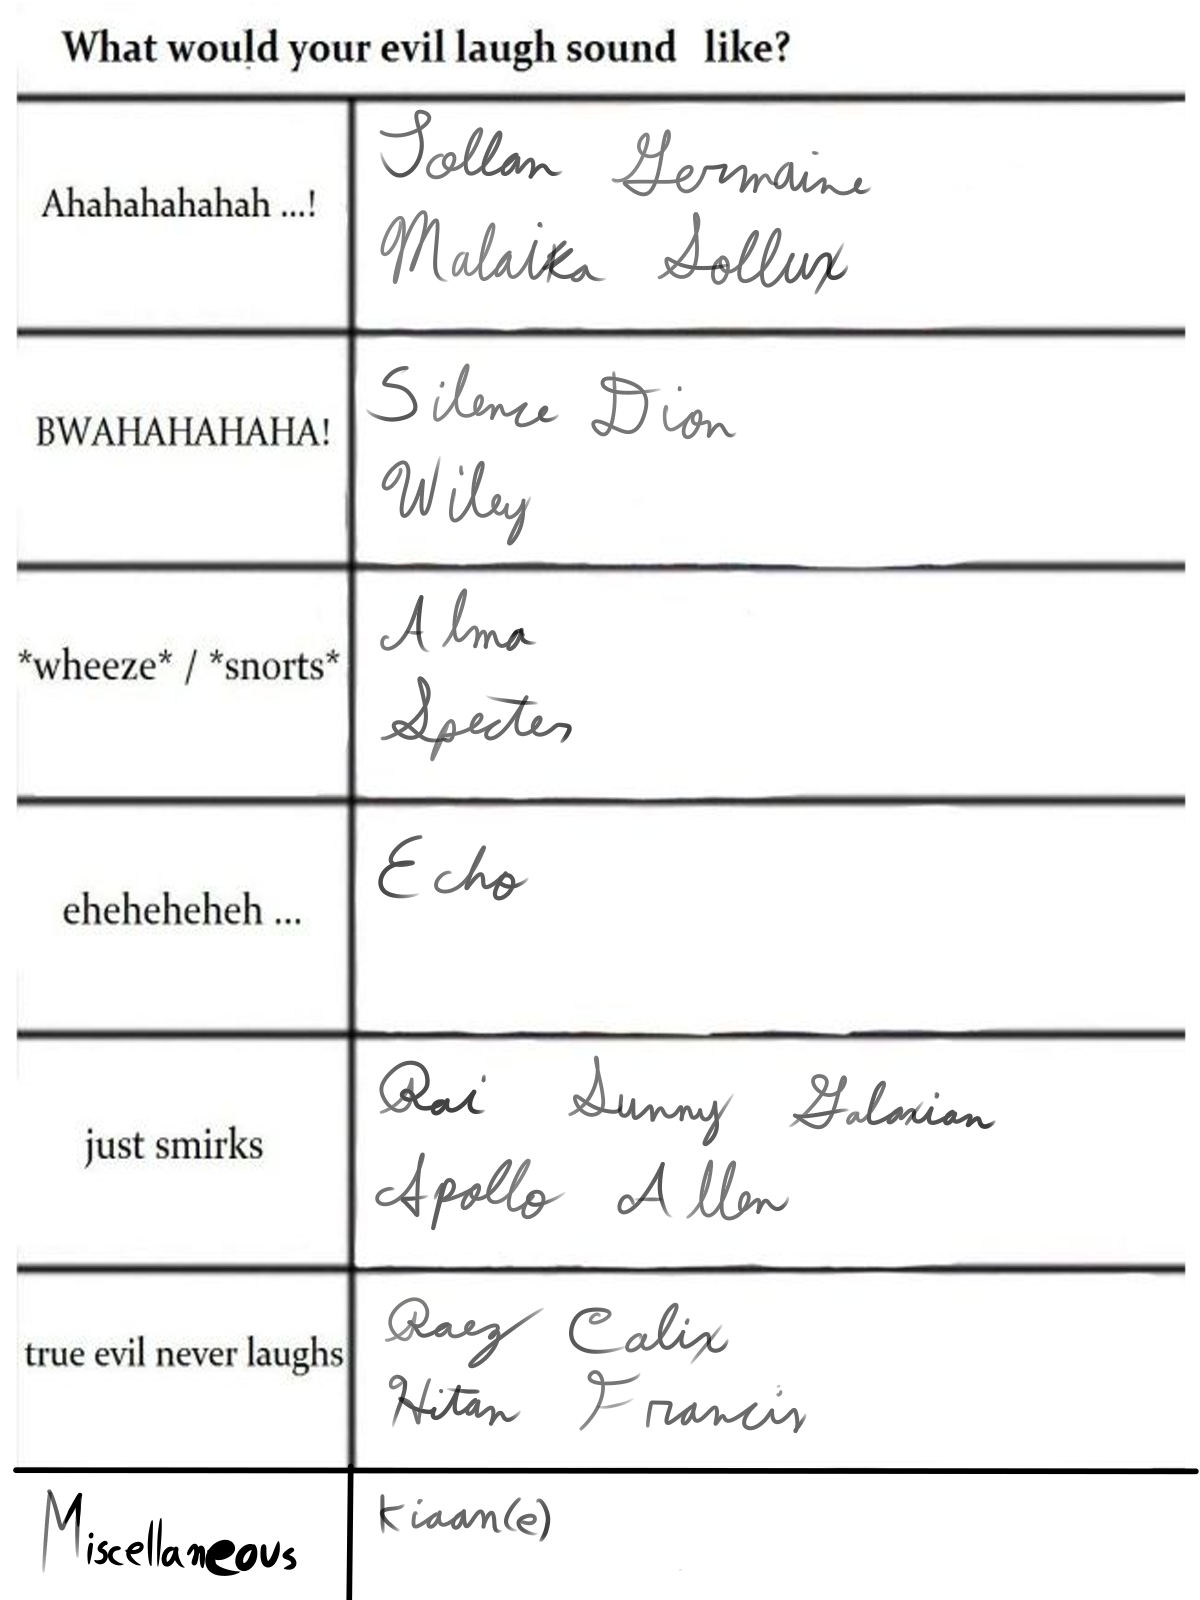 What would your evil laugh sound like?
Ahahahahahah ...!
Tollan Germaine
Malaika Sollux
BWAHAHAHAHA!
Silence Dion
Wiley
*wheeze* / *snorts*
Alma
Specter
eheheheheh ...
Echo
just smirks
Rai Sunny Galaxian
Apollo Allen
true evil never laughs
Raez Calix
Hitan Francis
Miscellaneous
Kiaan(e)